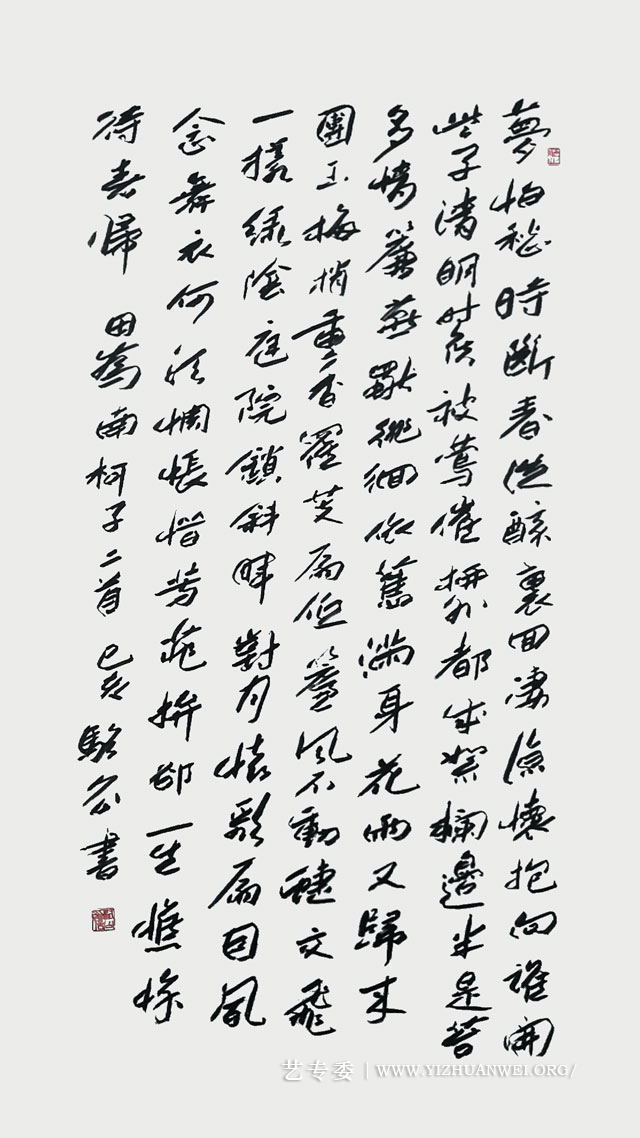 夢怕愁時斷春從醉裏回凄涼懷抱向誰開
些子清明時候被鶯催柳外都成絮欄邊半是苔
多情簾燕獨徘徊依舊滿身花雨又歸來
團玉梅梢重香羅芰扇低簾風不動蝶交飛
一樣綠陰庭院鎖斜暉對月懷歌扇因風
念舞衣何須惆悵惜芳菲拚却一生憔悴
待春歸 田為南柯子二首 己亥 駱公書
艺专委 | WWW.YIZHUANWEI.ORG/